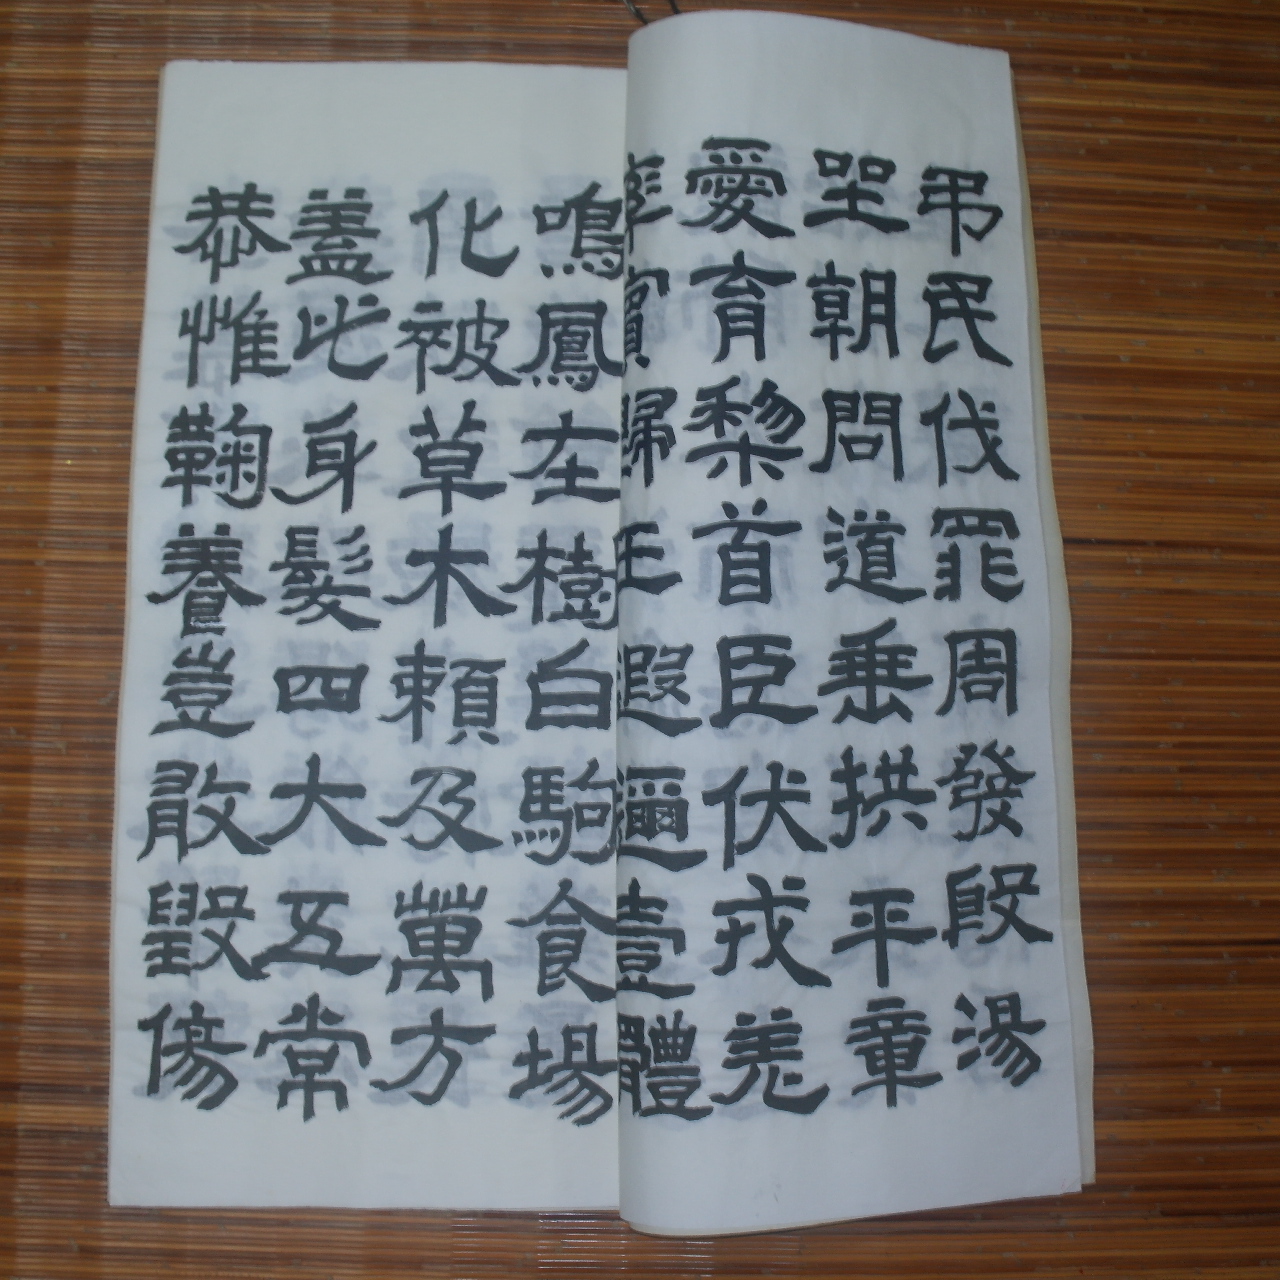 弔民伐罪周發殷湯
坐朝問道垂拱平章
愛育黎首臣伏戎羌
率賓歸王遐邇壹體
鳴鳳在樹白駒食場
化被草木賴及萬方
蓋此身髮四大五常
恭惟鞠養豈敢毀傷